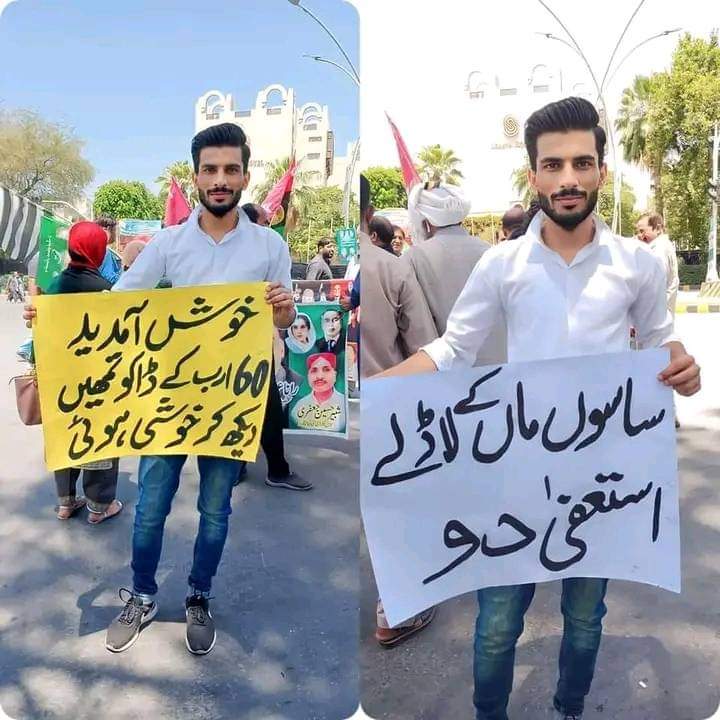 خوش آمدید
60 ارب کے ڈاکو تمھیں
دیکھ کر خوشی ہوئی
شبیر حسین جعفری
ساسوں ماں کے لاڈلے
استعفیٰ دو